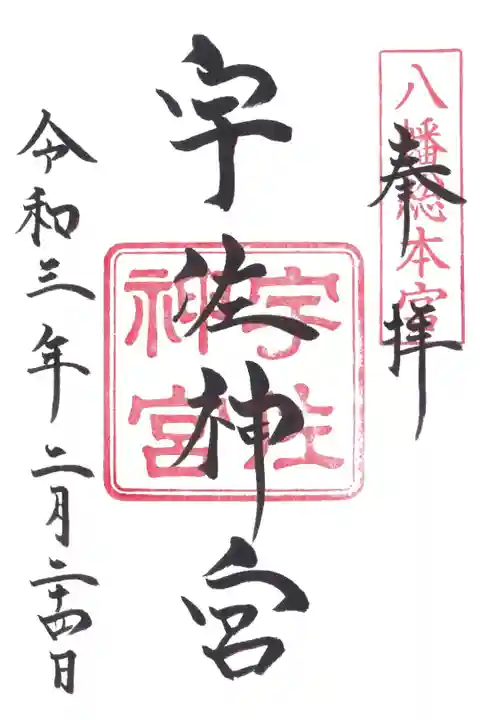 八幡総本宮
奉拝
宇佐神宮
宇佐
神宮
令和三年二月二十四日